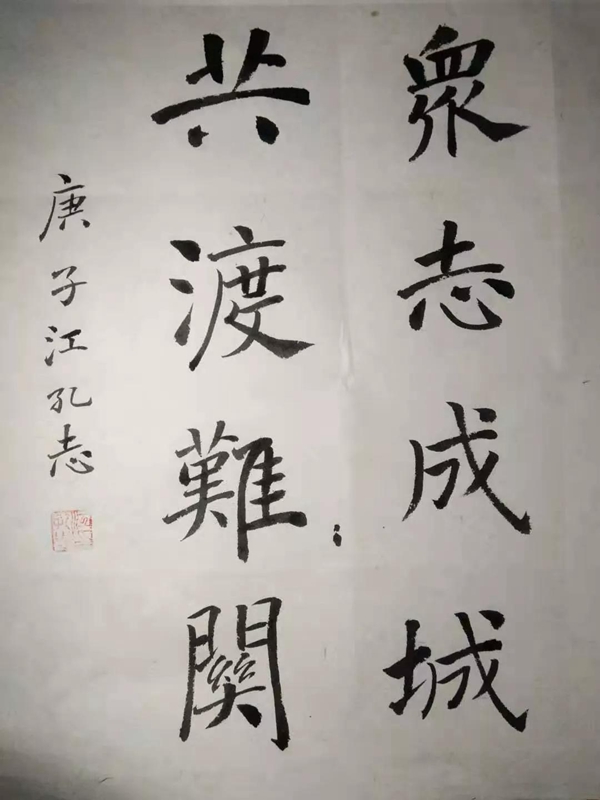 衆志成城
共渡難關
庚子江孔志